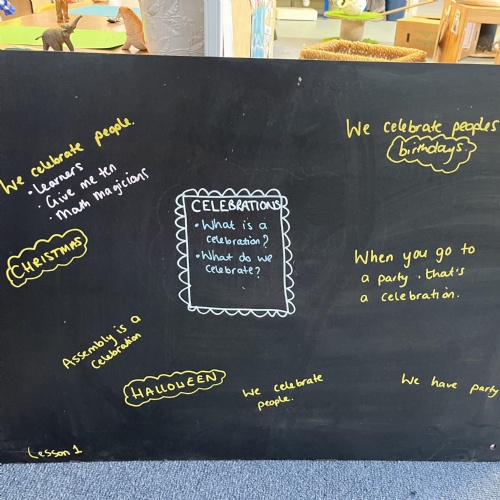 We celebrate people.
• Learners
• Give me ten
• Math Magicians
We celebrate peoples
birthdays.
CELEBRATIONS
• What is a
celebration?
• What do we
celebrate?
CHRISTMAS
When you go to
a party. that's
a celebration.
Assembly is a
celebration
HALLOWEEN
We celebrate
people.
We have party
Lesson 1